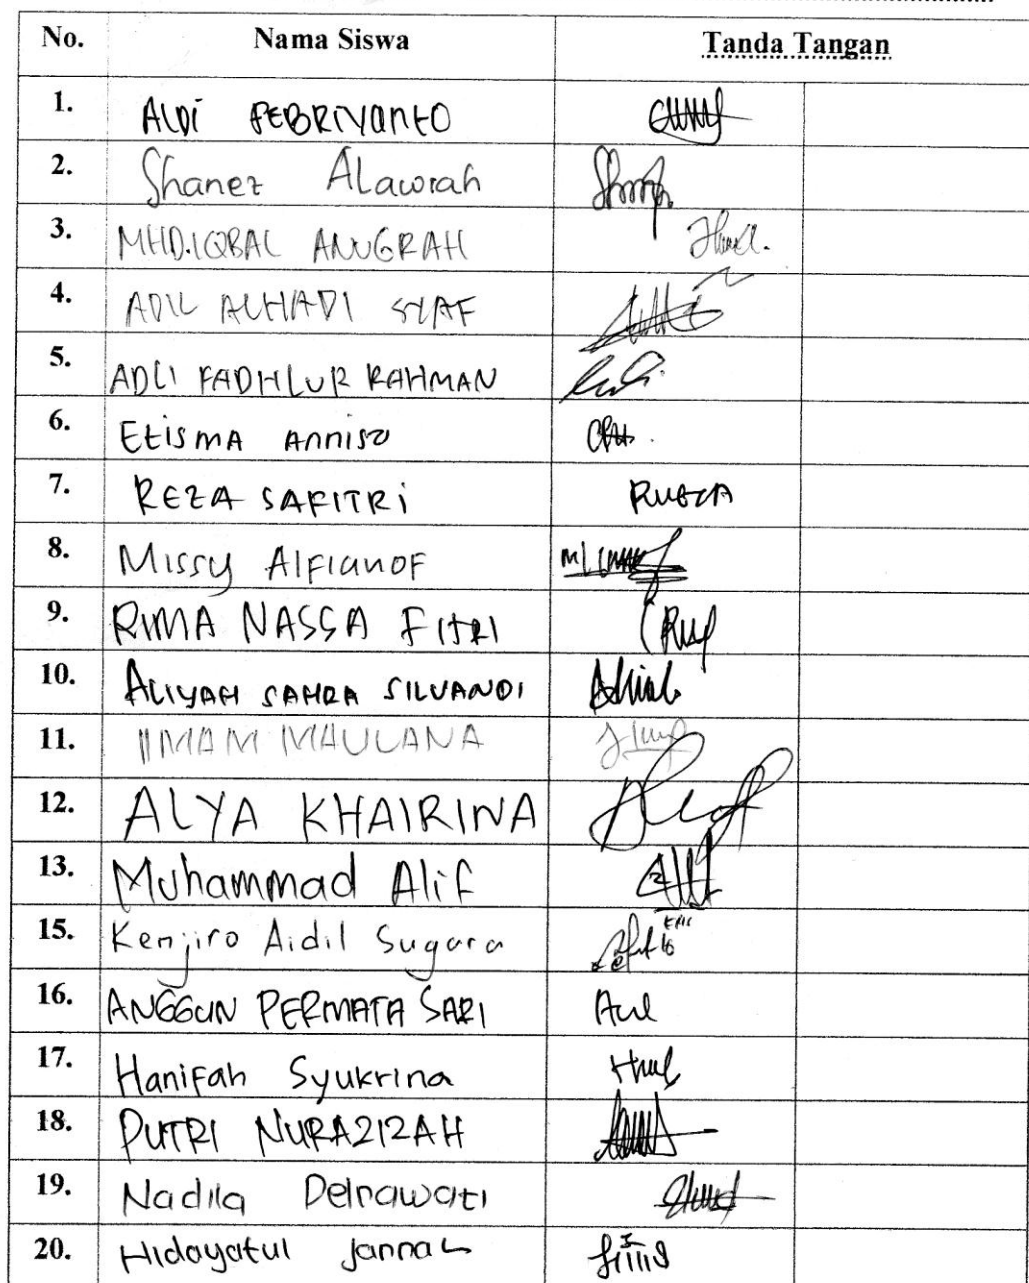 No. Nama Siswa Tanda Tangan
1. ALDI FEBRIYANTO
2. Shanez Alawrah
3. MHD.IQBAL ANUGRAH
4. ADIL ALHADI SYAF
5. ADLI FADHLUR RAHMAN
6. Etisma Annisa
7. REZA SAFITRI
8. Missy Alfianof
9. RIMA NASSA FITRI
10. ALIYAH SAHRA SILVANDI
11. IMAM MAULANA
12. ALYA KHAIRINA
13. Muhammad Alif
15. Kenjiro Aidil Sugara
16. ANGGUN PERMATA SARI
17. Hanifah Syukrina
18. PUTRI NURAZIZAH
19. Nadila Delrawati
20. Hidayatul Jannah